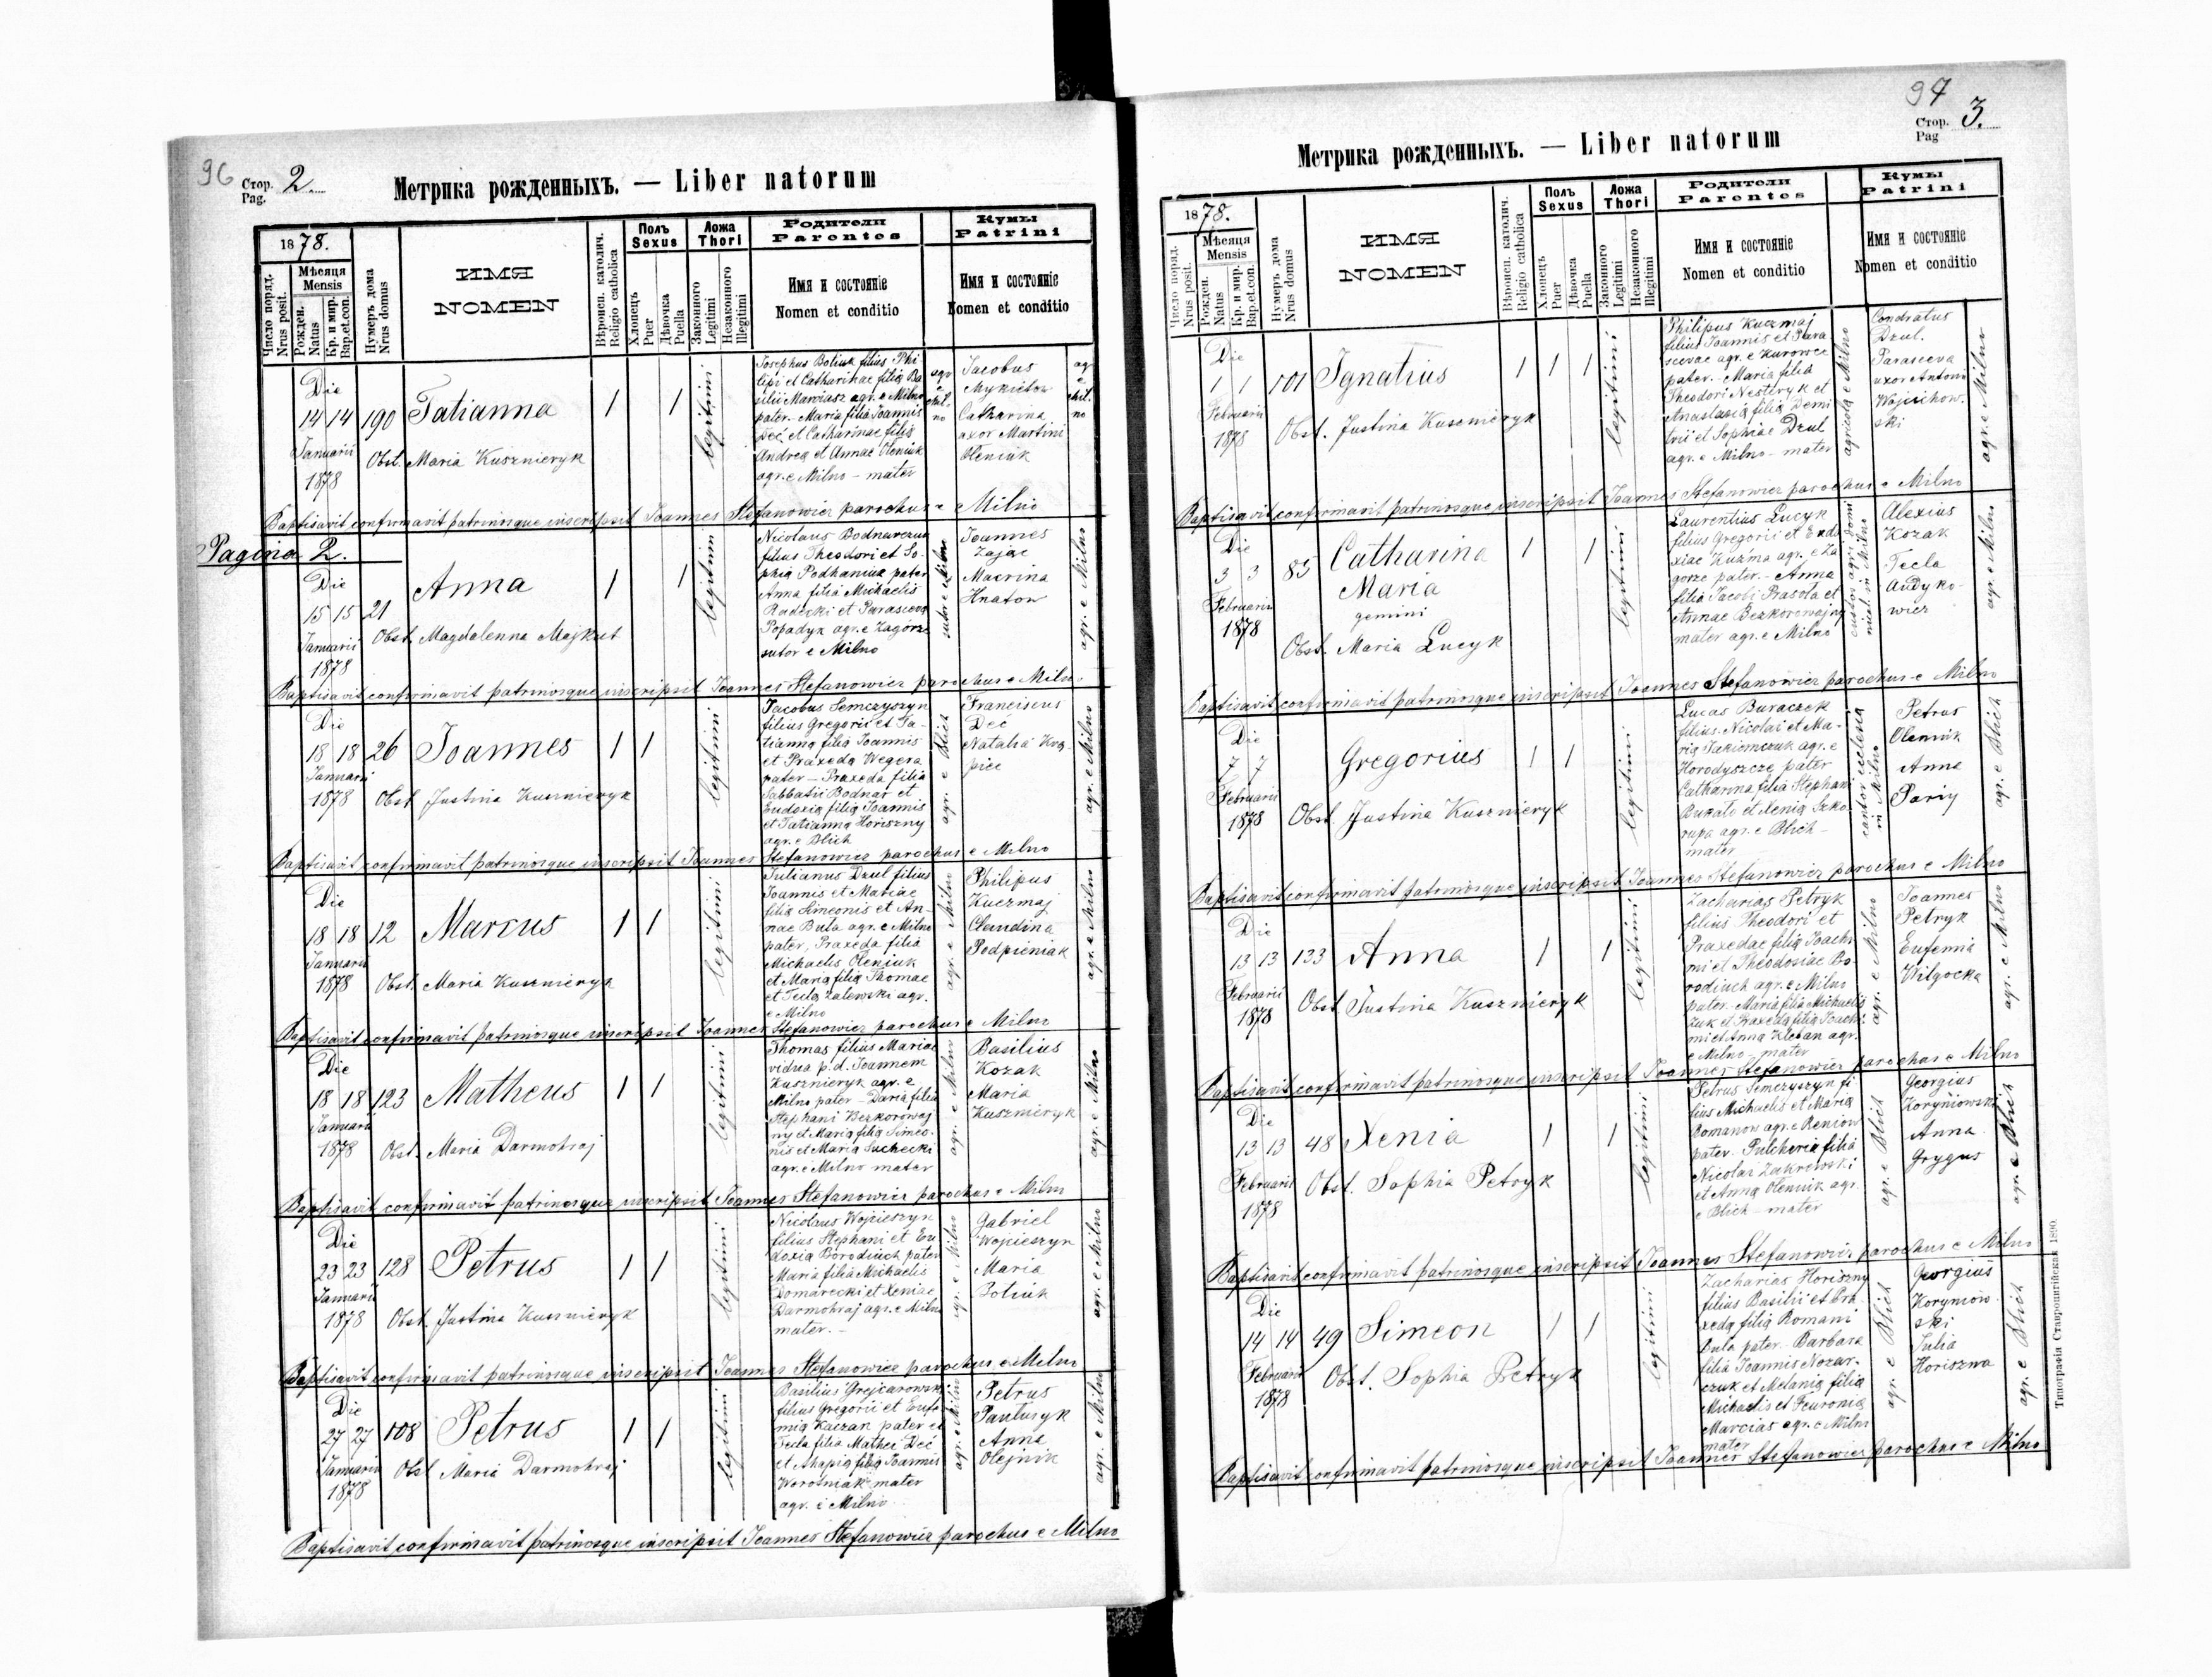 96
Стор. 2.
Pag.
Метрика рожденныхъ. — Liber natorum
1878.
Число поряд.
Nrus posit.
Мѣсяца
Mensis
Рожден.
Natus
Кр. и мир.
Bap.et.con.
Нумеръ дома
Nrus domus
ИМЯ
NOMEN
Вѣроисп. католич.
Religio catholica
Полъ
Sexus
Хлопецъ
Puer
Дѣвочка
Puella
Ложа
Thori
Законного
Legitimi
Незаконного
Illegitimi
Родители
Parentes
Имя и состояніе
Nomen et conditio
Кумы
Patrini
Имя и состояніе
Nomen et conditio
Die
14 14 190 Tatianna 1 1
Januarii
1878
Obst. Maria Kusznieryk
legitimi
Josephus Boliuk filius Phi-
lipi et Catharinae filia Ba-
silii Marciasz agr. e Milno
pater. Maria filia Joannis
Deć et Catharinae filia
Andrea et Annae Oleniuk
agr. e Milno - mater
agr. e Milno
Jacobus
Mykietow
Catharina
uxor Martini
Oleniuk
agr. e Milno
Baptisavit confirmavit patrinosque inscripsit Joannes Stefanowicz parochus e Milno
Pagina 2.
Die
15 15 21 Anna 1 1
Januarii
1878
Obst. Magdalenna Majkut
legitimi
Nicolaus Bodnarczuk
filius Theodori et So-
phia Podhaniuk pater
Anna filia Michaelis
Radecki et Parasceva
Popadyk agr. e Zagorze
sutor e Milno
sutor e Milno
Joannes
Zając
Macrina
Hnatow
agr. e Milno
Baptisavit confirmavit patrinosque inscripsit Joannes Stefanowicz parochus e Milno
Die
18 18 26 Joannes 1 1
Januarii
1878
Obst. Justina Kusznieryk
legitimi
Jacobus Semczyszyn
filius Gregorii et Ta-
tianna filia Joannis
et Praxeda Wegera
pater - Praxeda filia
Sabbatii Bodnar et
Eudoxia filia Joannis
et Tatianna Horiszny
agr. e Blich
agr. e Blich
Franciscus
Deć
Natalia Kra-
piec
agr. e Milno
Baptisavit confirmavit patrinosque inscripsit Joannes Stefanowicz parochus e Milno
Die
18 18 12 Marcus 1 1
Januarii
1878
Obst. Maria Kusznieryk
legitimi
Julianus Dzul filius
Joannis et Mariae
filia Simeonis et An-
nae Buta agr. e Milno
pater, Praxeda filia
Michaelis Oleniuk
et Maria filia Thomae
et Tecla Zalewski agr.
e Milno
agr. e Milno
Philipus
Kuczmaj
Claudina
Podpieniak
agr. e Milno
Baptisavit confirmavit patrinosque inscripsit Joannes Stefanowicz parochus e Milno
Die
18 18 123 Matheus 1 1
Januarii
1878
Obst. Maria Darmohraj
legitimi
Thomas filius Mariae
vidua p.d. Joannem
Kusznieryk agr. e
Milno pater - Daria filia
Stephani Bezkorowaj-
ny et Maria filia Simeo-
nis et Maria Suchecki
agr. e Milno mater
agr. e Milno
Basilius
Kozak
Maria
Kusznieryk
agr. e Milno
Baptisavit confirmavit patrinosque inscripsit Joannes Stefanowicz parochus e Milno
Die
23 23 128 Petrus 1 1
Januarii
1878
Obst. Justina Kusznieryk
legitimi
Nicolaus Wojcieszyn
filius Stephani et Eu-
doxia Borodiuch pater
Maria filia Michaelis
Domarecki et Xeniae
Darmohraj agr. e Milno
mater. -
agr. e Milno
Gabriel
Wojcieszyn
Maria
Potiuk
agr. e Milno
Baptisavit confirmavit patrinosque inscripsit Joannes Stefanowicz parochus e Milno
Die
27 27 108 Petrus 1 1
Januarii
1878
Obst. Maria Darmohraj
legitimi
Basilius Grejcarowski
filius Gregorii et Eufe-
mia Kaczan pater et
Tecla filia Mathei Deć
et Ahapia filia Joannis
Worośniak mater
agr. e Milno
agr. e Milno
Petrus
Pauluryk
Anna
Olejnik
agr. e Milno
Baptisavit confirmavit patrinosque inscripsit Joannes Stefanowicz parochus e Milno
97
Стор. 3.
Pag
Метрика рожденныхъ. — Liber natorum
1878.
Число поряд.
Nrus posit.
Мѣсяца
Mensis
Рожден.
Natus
Кр. и мир.
Bap.et.con.
Нумеръ дома
Nrus domus
ИМЯ
NOMEN
Вѣроисп. католич.
Religio catholica
Полъ
Sexus
Хлопецъ
Puer
Дѣвочка
Puella
Ложа
Thori
Законного
Legitimi
Незаконного
Illegitimi
Родители
Parentes
Имя и состояніе
Nomen et conditio
Кумы
Patrini
Имя и состояніе
Nomen et conditio
Die
1 1 101 Ignatius 1 1 1
Februarii
1878
Obst. Justina Kusznieryk
legitimi
Philipus Kuczmaj
filius Joannis et Para-
scevae agr. e Kurowce
pater. - Maria filia
Theodori Nestryk et
Anastasia filia Demi-
trii et Sophiae Dzul
agr. e Milno - mater
agricola e Milno
Condratus
Dzul.
Parasceva
uxor Antoni
Wojcikow-
ski
agr. e Milno
Baptisavit confirmavit patrinosque inscripsit Joannes Stefanowicz parochus e Milno
Die
3 3 83 Catharina 1 1
Maria
gemini
Februarii
1878
Obst. Maria Lucyk
legitimi
Laurentius Lucyk
filius Gregorii et Eudo-
xiae Kuzma agr. e Za-
gorze pater. - Anna
filia Jacobi Prasota et
Annae Bezkorowajny
mater agr. e Milno
Alexius
Kozak
Tecla
Andyko-
wicz
agr. e Milno
Baptisavit confirmavit patrinosque inscripsit Joannes Stefanowicz parochus e Milno
Die
7 7 Gregorius 1 1
Februarii
1878
Obst. Justina Kusznieryk
legitimi
Lucas Buraczek
filius Nicolai et Ma-
ria Jakimczuk agr. e
Horodyszcze pater
Catharina filia Stephani
Bukato et Xenia Szko-
rupa agr. e Blich -
mater
cantor ecclesia
in Milno
Petrus
Oleniuk
Anna
Pariy
agr. e Blich
Baptisavit confirmavit patrinosque inscripsit Joannes Stefanowicz parochus e Milno
Die
13 13 133 Anna 1 1
Februarii
1878
Obst. Justina Kusznieryk
legitimi
Zacharias Petryk
filius Theodori et
Praxedae filia Joachi-
mi et Theodosiae Bo-
rodiuch agr. e Milno
pater. Maria filia Michaelis
Zuk et Praxeda filia Joachi-
mi et Anna Kleban agr.
e Milno - mater
agr. e Milno
Joannes
Petryk
Eufemia
Wilgocka
agr. e Milno
Baptisavit confirmavit patrinosque inscripsit Joannes Stefanowicz parochus e Milno
Die
13 13 48 Xenia 1 1
Februarii
1878
Obst. Sophia Petryk
legitimi
Petrus Semczyszyn fi-
lius Michaelis et Maria
Romanow agr. e Reniow
pater. Pulcheria filia
Nicolai Zakrewski
et Anna Oleniuk agr.
e Blich - mater
agr. e Blich
Georgius
Koryniowski
Anna
Grygus
agr. e Blich
Baptisavit confirmavit patrinosque inscripsit Joannes Stefanowicz parochus e Milno
Die
14 14 49 Simeon 1 1
Februarii
1878
Obst. Sophia Petryk
legitimi
Zacharias Horiszny
filius Basilii et Pra-
xeda filia Romani
Buta pater. Barbara
filia Joannis Nozar-
czuk et Melania filia
Michaelis et Feuronia
Marcias agr. e Milno
mater
agr. e Blich
Georgius
Koryniow-
ski
Julia
Horiszna
agr. e Blich
Baptisavit confirmavit patrinosque inscripsit Joannes Stefanowicz parochus e Milno
Типографія Ставропигійская 1890.